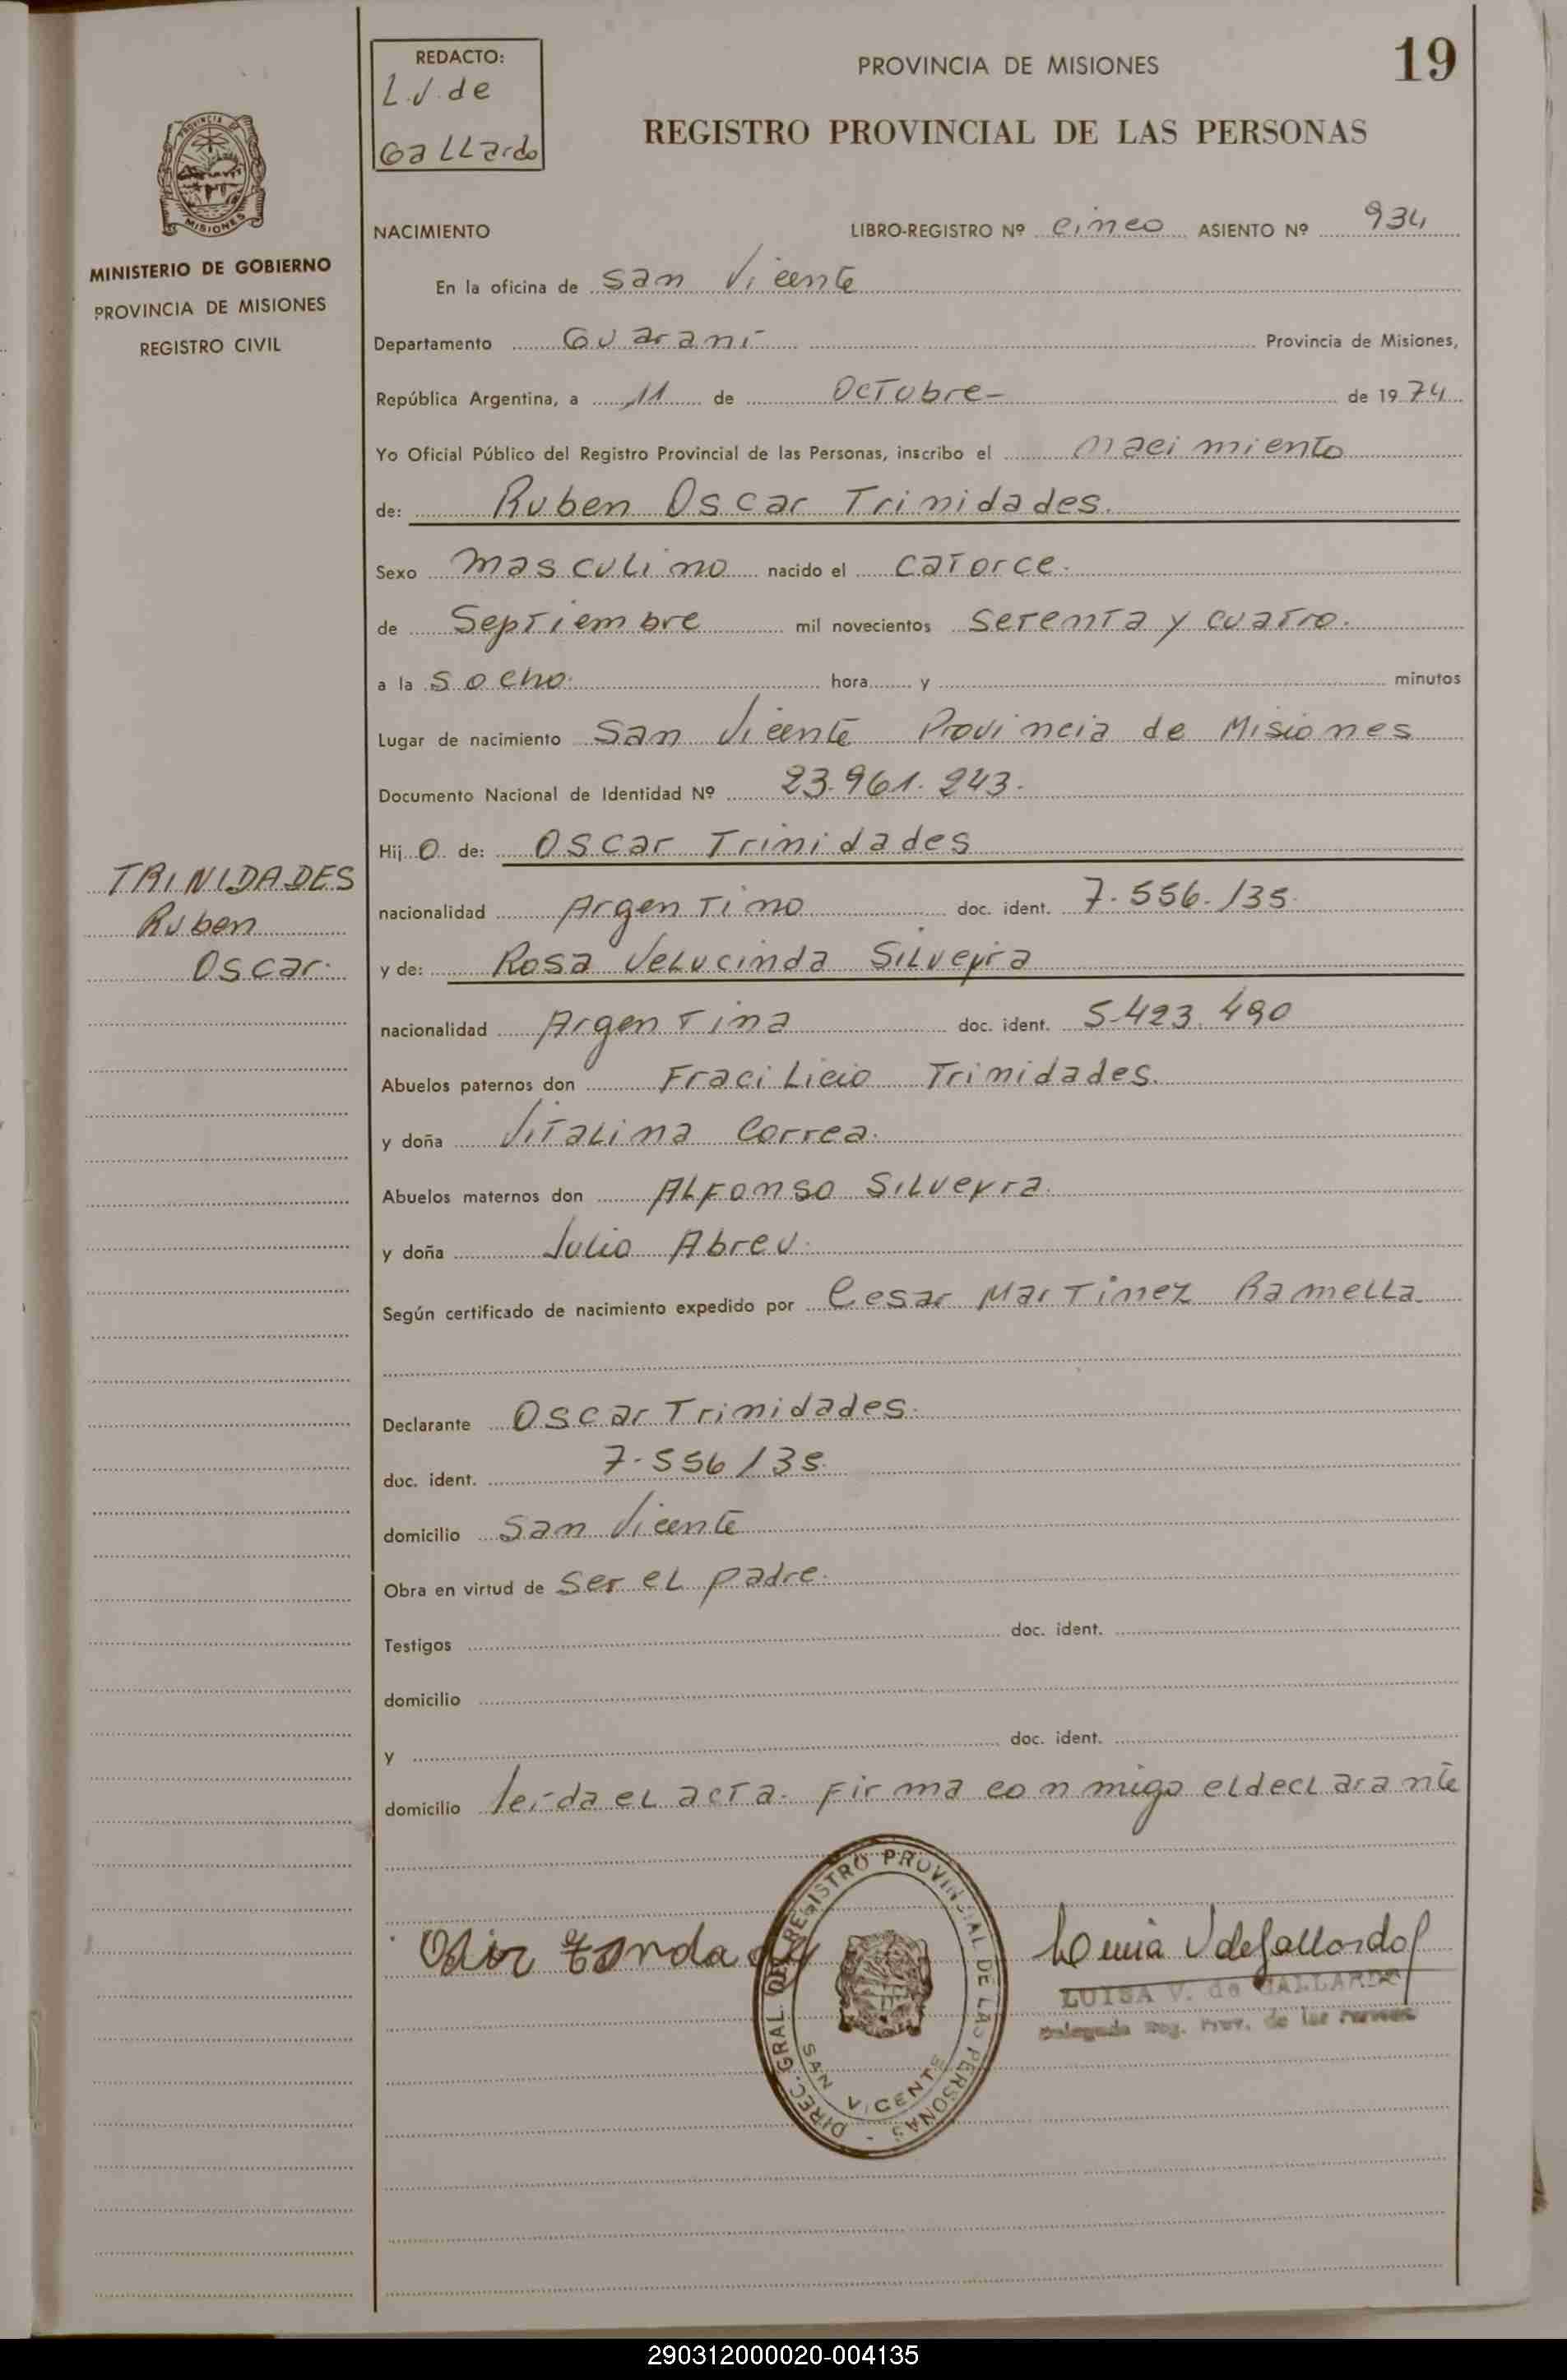 REDACTO:
L.V. de
Gallardo
PROVINCIA DE MISIONES
19
REGISTRO PROVINCIAL DE LAS PERSONAS
PROVINCIA DE
MISIONES
MINISTERIO DE GOBIERNO
PROVINCIA DE MISIONES
REGISTRO CIVIL
NACIMIENTO LIBRO-REGISTRO Nº cinco ASIENTO Nº 934
En la oficina de San Vicente
Departamento Guaraní Provincia de Misiones,
República Argentina, a 11 de Octubre - de 1974
Yo Oficial Público del Registro Provincial de las Personas, inscribo el nacimiento
de: Ruben Oscar Trinidades.
Sexo masculino nacido el catorce.
de Septiembre mil novecientos setenta y cuatro.
a la s ocho. hora y minutos
Lugar de nacimiento San Vicente Provincia de Misiones
Documento Nacional de Identidad Nº 23.961.243.
Hijo de: Oscar Trinidades
TRINIDADES
Ruben
Oscar.
nacionalidad Argentino doc. ident. 7.556.135.
y de: Rosa Velucinda Silveyra
nacionalidad Argentina doc. ident. 5.423.490
Abuelos paternos don Fracilicio Trinidades.
y doña Vitalina Correa.
Abuelos maternos don Alfonso Silveyra.
y doña Julia Abreu.
Según certificado de nacimiento expedido por Cesar Martinez Ramella
Declarante Oscar Trinidades.
doc. ident. 7.556135.
domicilio San Vicente
Obra en virtud de ser el padre.
Testigos doc. ident.
domicilio
y doc. ident.
domicilio leída el acta. firma conmigo el declarante
DIREC. GRAL. DEL REGISTRO PROVINCIAL DE LAS PERSONAS -
SAN VICENTE
Luisa V de Gallardo
LUISA V. de GALLARDO
Delegada Reg. Prov. de las Personas
290312000020-004135